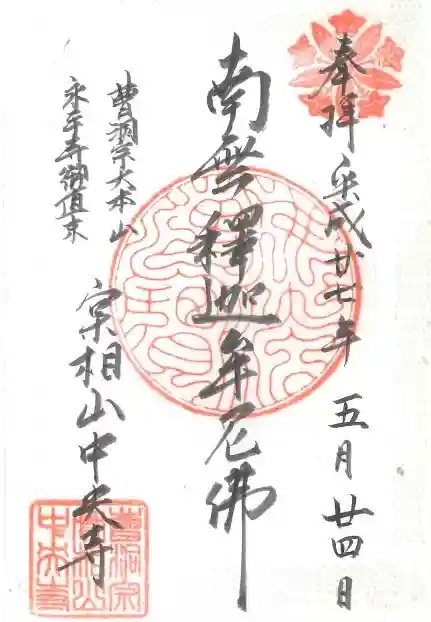 奉拝 平成廿七年 五月廿四日
南無釋迦牟尼佛
曹洞宗大本山
永平寺御直末
宗相山中央寺
曹洞宗
宗相山
中央寺